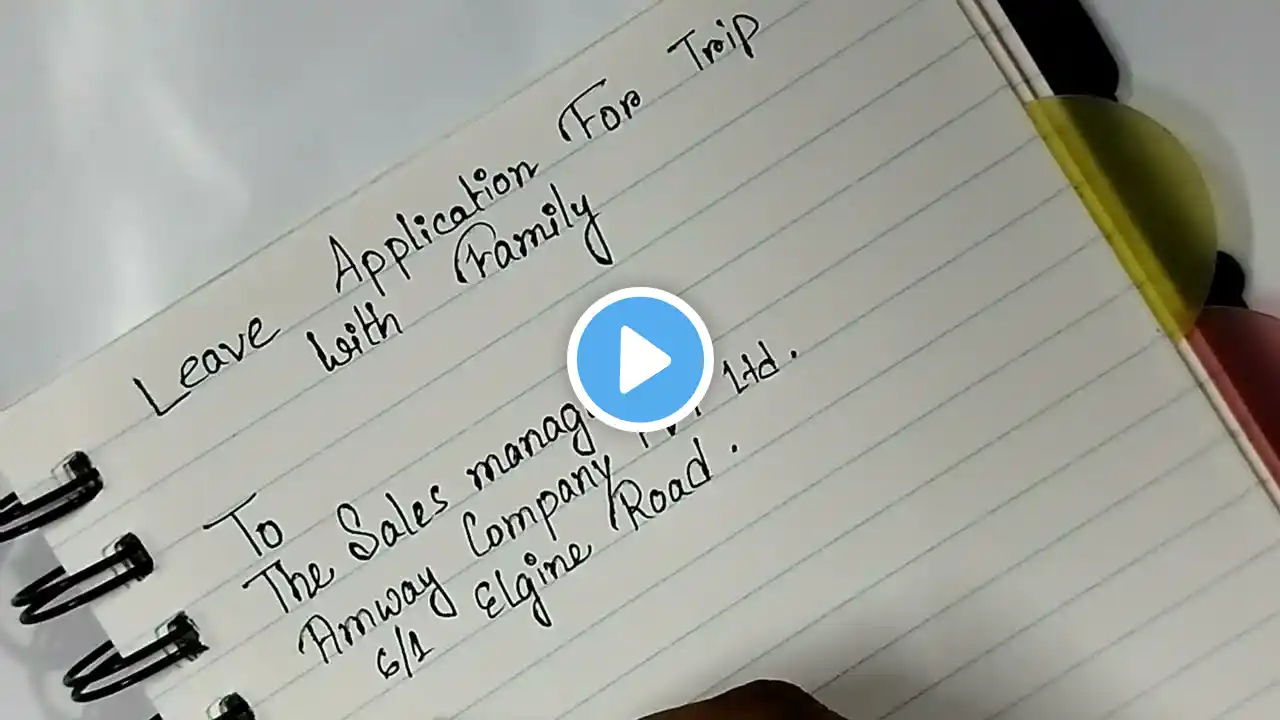 Leave Application For Trip
with Family
To
The Sales
Amway Company Ltd.
6/1 Elgine Road.